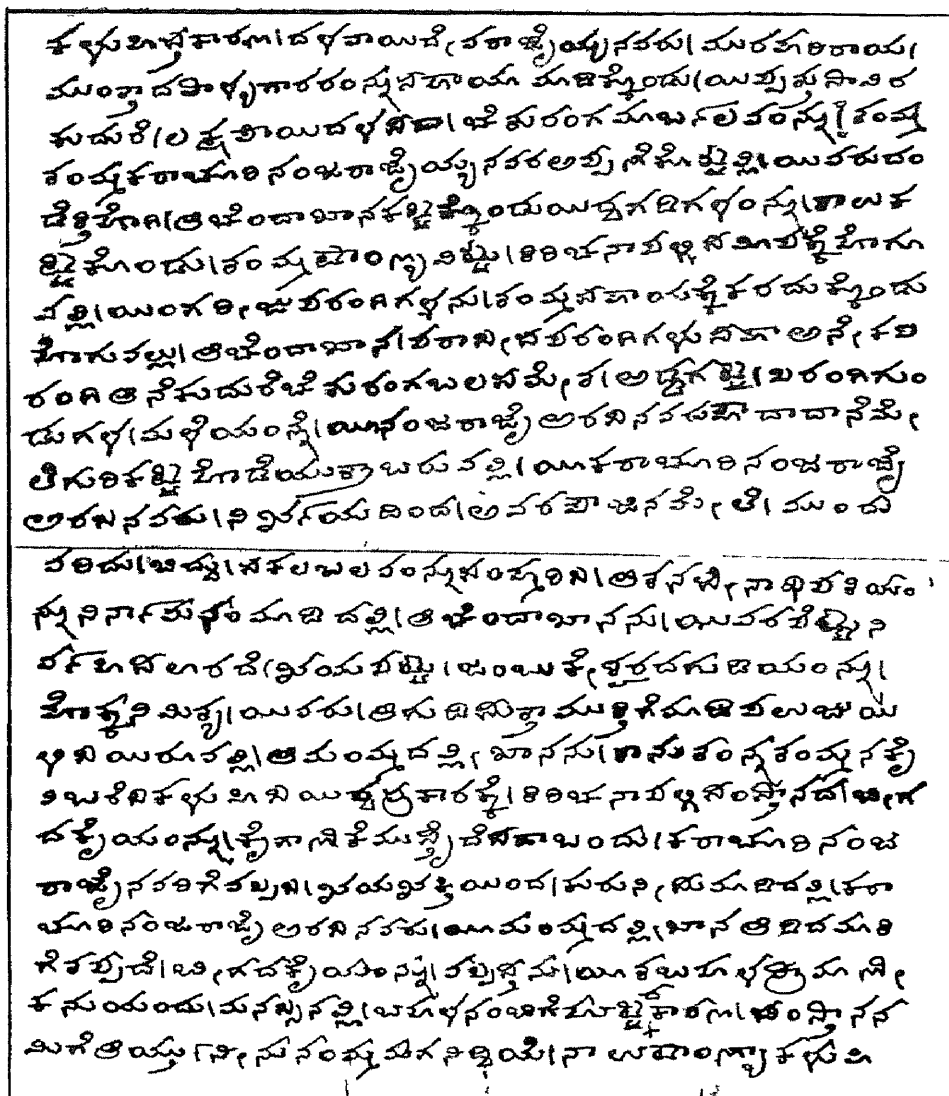 ಕಳುಹಿಸ್ತಕಾರಣ। ದಳವಾಯಿದೇವರಾಜೈಯ್ಯನವರು। ಮುರಹರಿರಾಯ।
ಮುಂತ್ತಾದ ಪಾಳ್ಯಗಾರರಂನ್ನು ಸಹಾಯ ಮಾಡಿಕ್ಕೊಂಡು। ಯಿಪ್ಪತ್ತುಸಾವಿರ
ಕುದುರೆ। ಲಕ್ಷ ಪಾಯಿದಳ ಸಹಾ। ಚತುರಂಗಮಾರ್ಬಲವಂನ್ನು। ತಂಮ್ಮ
ತಂಮ್ಮಕರಾಚೂರಿನಂಜರಾಜೈಯ್ಯನವರ ಅಪ್ಪಣೆಕೊಟ್ಟಲ್ಲಿ। ಯಿವರುದಂ
ಡೆತ್ತಿಹೋಗಿ। ಆಚೆಂದಾಖಾನಕಟ್ಟಿಕ್ಕೊಂಡುಯಿದ್ದಗಡಿಗಳಂನ್ನು। ಕಾಲುಕ
ಟ್ಟಿಕೊಂಡು। ತಂಮ್ಮಠಾಂಣ್ಯವಿಟ್ಟು। ತಿರಿಚನಾಪಲ್ಲಿ ಸಮೀಪಕ್ಕೆಹೋಗೂ
ವಲ್ಲಿ। ಯಿಂಗರೀಜುಪರಂಗಿಗಳ್ನನು। ತಂಮ್ಮಸಹಾಯಕ್ಕೆಕರದುಕ್ಕೊಂಡು
ಹೋಗುವಲ್ಲು। ಆಚೆಂದಾಖಾನ। ಪರಾಸೀಸಪರಂಗಿಗಳು ಸಹಾ ಅನೇಕಪಿ
ರಂಗಿ ಆನೆಕುದುರೆಚತುರಂಗಬಲಸಮೇತ। ಅಡ್ಡಗಟ್ಟಿ। ಪಿರಂಗಿಗುಂ
ಡುಗಳ। ಮಳೆಯಂನ್ನೆ। ಯೀನಂಜರಾಜೈ ಅರಸಿನವರ ಮೇ
ಲೆಗುರಿಕಟ್ಟಿ ಹೊಡೆಯುತ್ತಾಬರುವಲ್ಲಿ। ಯೀಕರಾಚೂರಿನಂಜರಾಜೈ
ಅರಸಿನವರು। ನಿರ್ಭಯದಿಂದ। ಅವರ ಪೌಜಿನಮೇಲೆ। ಮುಂದು
ವರಿದು। ಬಿದ್ದು। ಸಕಲಬಲವಂನ್ನುಸಂಹ್ಮರಿಸಿ। ಆತನಸೇನಾಧಿಪತಿಯಂ
ನ್ನುನಿರ್ನಾಮವಂ ಮಾಡಿದಲ್ಲಿ। ಆಚೆಂದಾಖಾನನು। ಯಿವರಪೆಟ್ಟುನಿ
ರ್ವಹಿಸಲಾರದೆ। ಭಯಪಟ್ಟು। ಜಂಬುಕೇಶ್ವರದಗುಡಿಯಂನ್ನು।
ಹೊಕ್ಕನಿಮಿತ್ಯ। ಯಿವರು। ಆಗುಡಿಸುತ್ತಾಮುತ್ತಿಗೆಮಾಡಿಪಾಳುಯ
ಳಿಸಿಯಿರೂವಲ್ಲಿ। ಆಮಂಮ್ಮದಲ್ಲಿ, ಖಾನನು। ತಾನುತಂನ್ನತಂಮ್ಮನಕೈ
ತಿರಿಚನಾಪಲ್ಲಿಸಂಸ್ತಾನದ। ಬೀಗ
ದಕೈಯಂನ್ನು। ಕೈಗಾಣಿಕೆಮುಸ್ತೈದೆಸಹಾಬಂದು। ಕರಾಚೂರಿನಂಜ
ರಾಜೈನವರಿಗೆವಪ್ಪಿಸಿ। ಭಯಭಕ್ತಿಯಿಂದ। ಕುರುನೀಸುಮಾಡಿದಲ್ಲಿ। ಕರಾ
ಚೂರಿನಂಜರಾಜೈ ಅರಸಿನವರು। ಯೀಮಂಮ್ಮದಲ್ಲಿ, ಖಾನ ಆಡಿದಮಾತಿ
ಗೆತಪ್ಪದೆ। ಬೀಗದಕೈಯಂನ್ನು। ವಪ್ಪಿಸ್ತನು। ಯೀತಬಹಳಪ್ರಾಮಾಣೀ
ಕನುಯಂದು। ಮನಸ್ಸಿನಲ್ಲಿ। ಬಹಳನಂಬಿಗೆಹುಟ್ಟಿರಕಾರಣ। ಸಂಸ್ತಾನನ
ಮಗೆಆಯ್ತು। ನೀನುನಂಮ್ಮಮಗನಿದ್ಧಿಯೆ। ನಾಉಠಾಂಣ್ಯಾಕಳುಹಿ